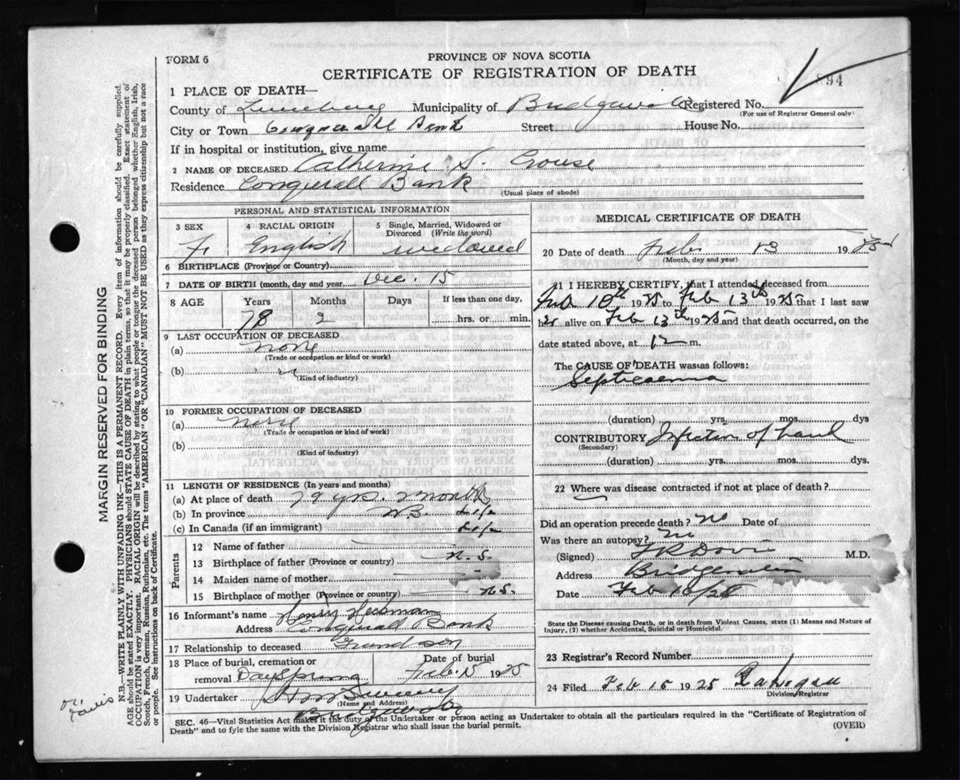 FORM 6
PROVINCE OF NOVA SCOTIA
CERTIFICATE OF REGISTRATION OF DEATH
894
1 PLACE OF DEATH—
County of Lunenburg Municipality of Bridgewater Registered No.
(For use of Registrar General only)
City or Town Conquerall Bank Street House No.
If in hospital or institution, give name
2 NAME OF DECEASED Catherine S. Crouse
Residence Conquerall Bank
(Usual place of abode)
PERSONAL AND STATISTICAL INFORMATION
3 SEX 4 RACIAL ORIGIN 5 Single, Married, Widowed or Divorced (Write the word)
F English widowed
6 BIRTHPLACE (Province or Country)
7 DATE OF BIRTH (month, day and year) Dec. 15
8 AGE Years Months Days If less than one day,
78 2 hrs. or min.
9 LAST OCCUPATION OF DECEASED
(a) none
(Trade or occupation or kind of work)
(b) "
(Kind of industry)
10 FORMER OCCUPATION OF DECEASED
(a) none
(Trade or occupation or kind of work)
(b)
(Kind of industry)
11 LENGTH OF RESIDENCE (In years and months)
(a) At place of death 79 yrs. 2 months
(b) In province
(c) In Canada (if an immigrant)
Parents
12 Name of father
13 Birthplace of father (Province or country) N.S.
14 Maiden name of mother
15 Birthplace of mother (Province or country) N.S.
16 Informant's name Henry Heckman
Address Conquerall Bank
17 Relationship to deceased Grandson
18 Place of burial, cremation or removal Dayspring Date of burial Feb. 15 1925
19 Undertaker
(Name and Address)
Bridgewater
MEDICAL CERTIFICATE OF DEATH
20 Date of death Feb 13 1925
(Month, day and year)
21 I HEREBY CERTIFY, that I attended deceased from
Feb 10th 1925 to Feb 13th 1925 that I last saw
her alive on Feb 13th 1925 and that death occurred, on the
date stated above, at 12 m.
The CAUSE OF DEATH was as follows:
Septicaemia
(duration) yrs. mos. dys
CONTRIBUTORY Infection of hand
(Secondary)
(duration) yrs. mos. dys.
22 Where was disease contracted if not at place of death?
Did an operation precede death? No Date of
Was there an autopsy? No
(Signed) M.D.
Address Bridgewater
Date Feb
State the Disease causing Death, or in death from Violent Causes, state (1) Means and Nature of Injury, (2) whether Accidental, Suicidal or Homicidal.
23 Registrar's Record Number
24 Filed Feb 15 1925
Division Registrar
SEC. 46—Vital Statistics Act makes it the duty of the Undertaker or person acting as Undertaker to obtain all the particulars required in the "Certificate of Registration of
Death" and to fyle the same with the Division Registrar who shall issue the burial permit. (OVER)
MARGIN RESERVED FOR BINDING
N.B.—WRITE PLAINLY WITH UNFADING INK—THIS IS A PERMANENT RECORD. Every item of information should be carefully supplied.
AGE should be stated EXACTLY. PHYSICIANS should STATE CAUSE OF DEATH in plain terms, so that it may be properly classified. Exact statement of
OCCUPATION is very important. RACIAL ORIGIN will be described by stating to what people or tongue the deceased person belonged whether English, Irish,
Scotch, French, German, Russian, Ruthenian, etc. The terms "AMERICAN" OR "CANADIAN" MUST NOT BE USED as they express citizenship but not a race
or people. See instructions on back of Certificate.